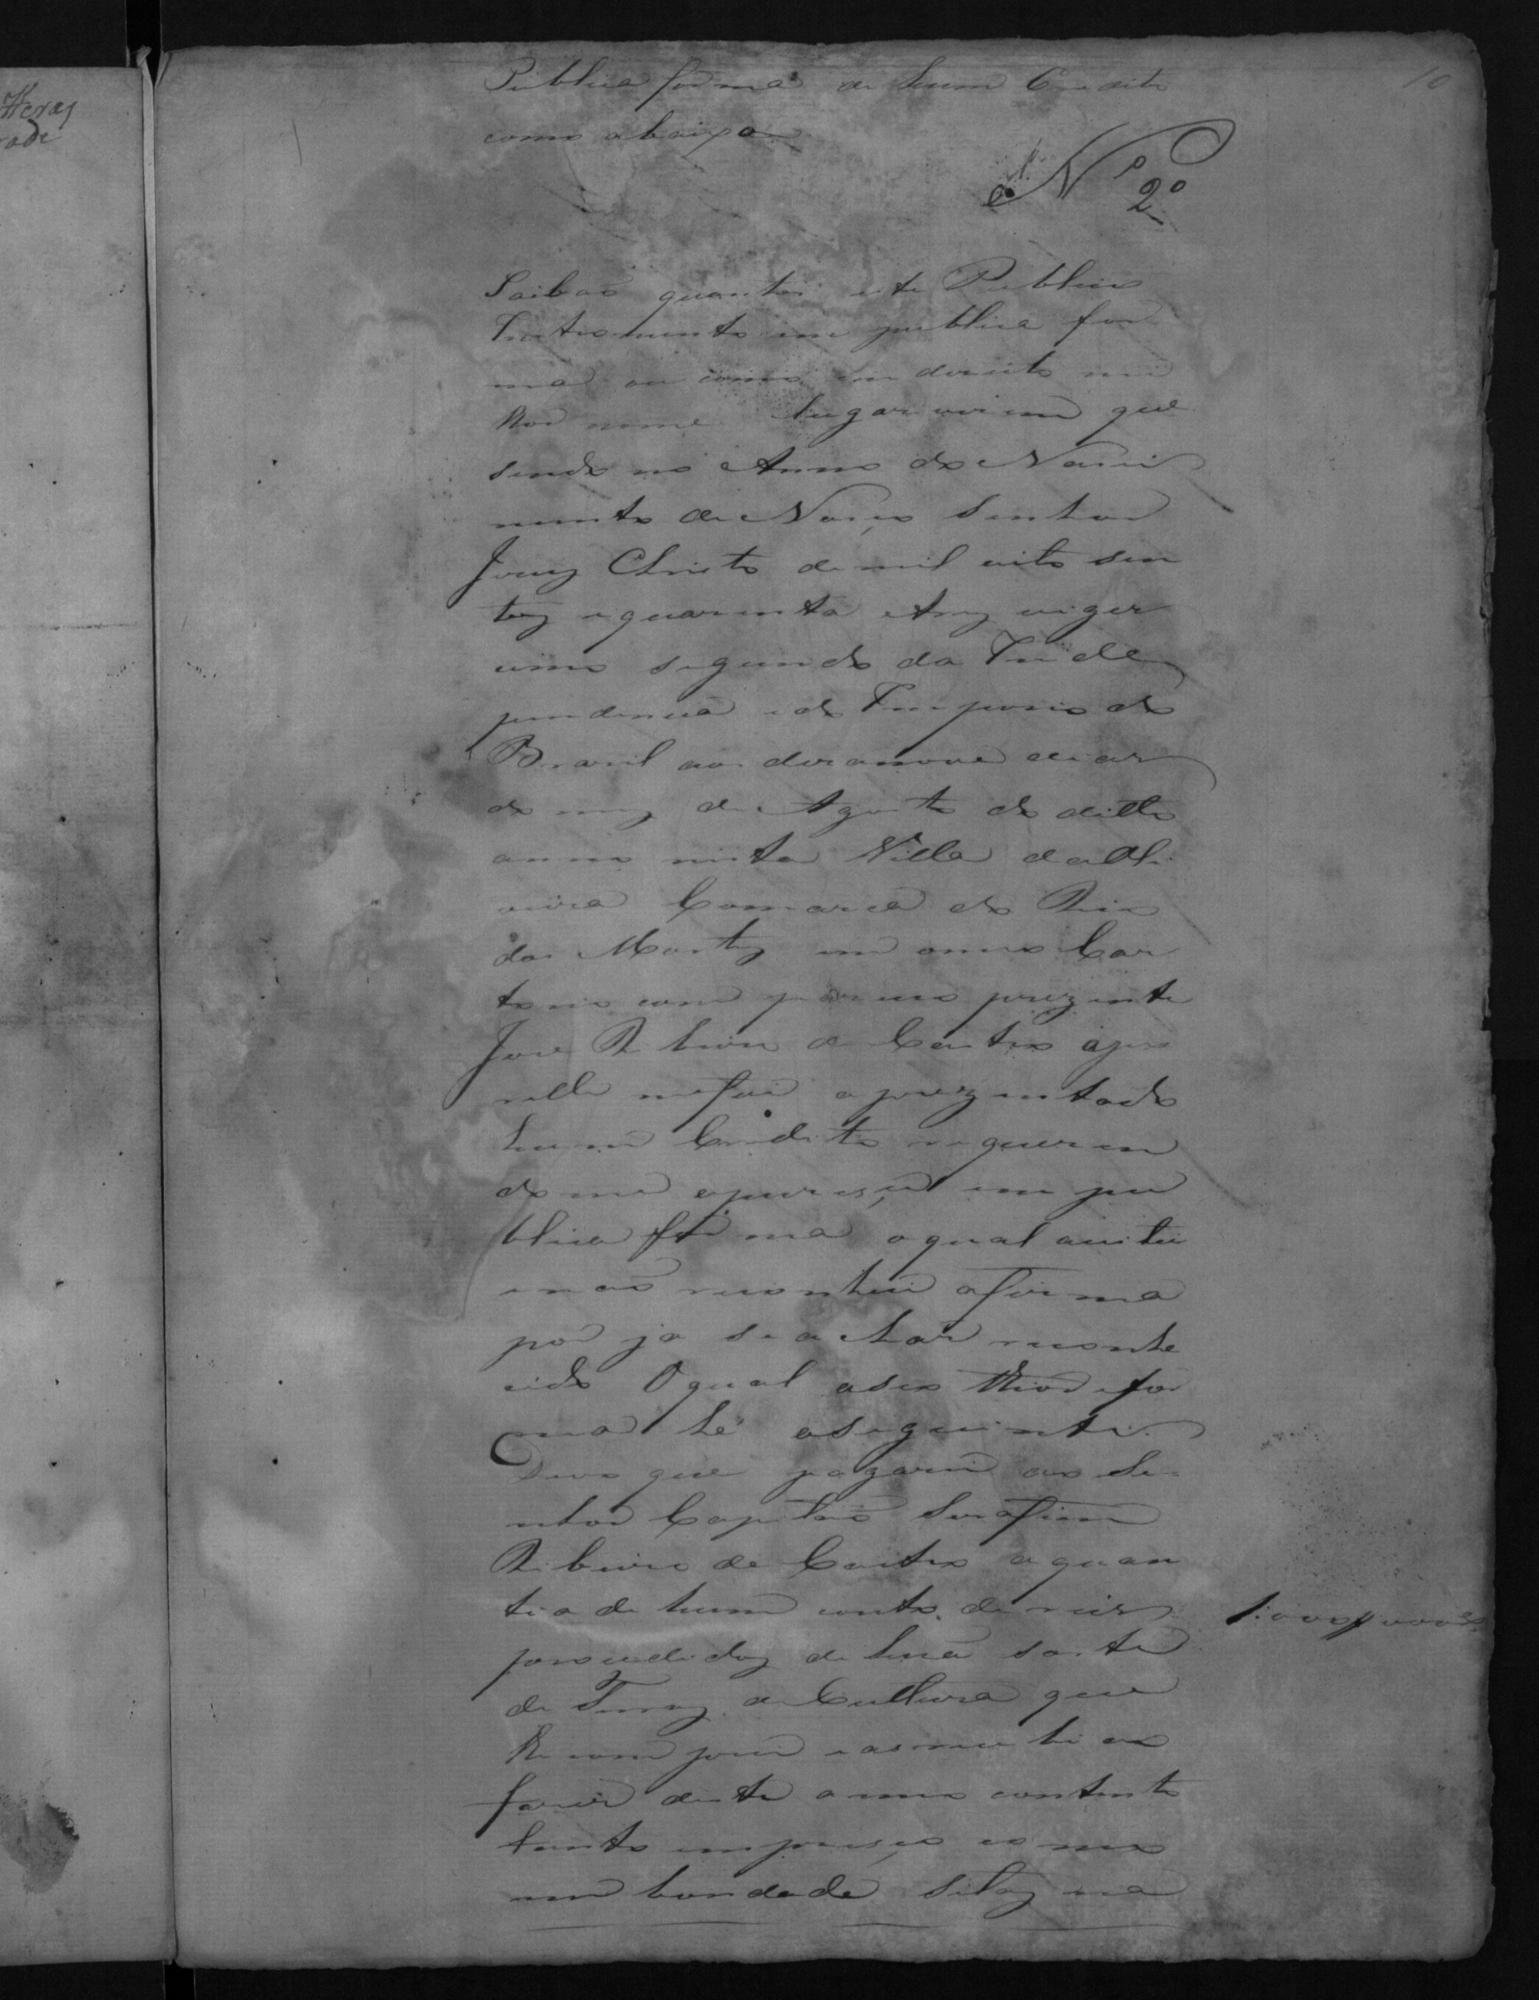 Heras
rade
10
Publica forma de hum Credito
como abaixo
Nº 2º
Saibaõ quantos este Publico
Instromento em publica for
ma ou como em dereito mi
lhor nome lugar virem que
sendo no Anno do Nasci
mento de Nosço Senhor
Jezus Christo de mil oito sen
tos e quarenta e tres viger
cimo segundo da Inde
pendencia e do Imperio do
Brasil aos dezanove dias
do mez de Agosto do ditto
anno nesta Villa da Oli
veira Comarca do Rio
das Mortes em o meo Car
torio compareceo prezente
Joze Ribeiro de Castro e por
elle me foi aprezentado
hum Credito requeren
dome em pu
blica forma o qual aceitei
e naõ reconheci a firma
por ja se achar reconhe
cido O qual o seo theor e for
ma hé o seguinte
Devo que pagarei ao Se
nhor Capitaõ Serafim
Ribeiro de Castro a quan
tia de hum conto de reis
porcedidos de huã sorte
de Terras de Cultura que
lhe comprei e as recebi ao
fazer deste a meo contento
tanto em presço como
em bondade sitas na
1:000$000rs